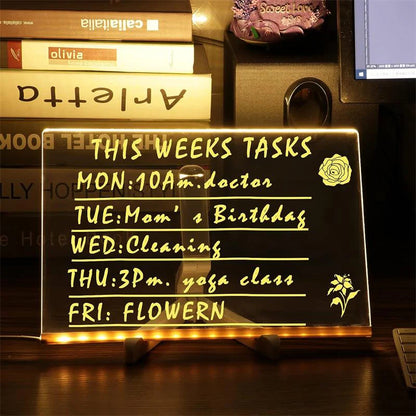 callaitalia
olivia
Arletta
THE HOTEL BOOK
THIS WEEKS TASKS
MON:10Am.doctor
TUE:Mom's Birthdag
WED:Cleaning
THU:3Pm. yoga class
FRI: FLOWERN
Sweet Love